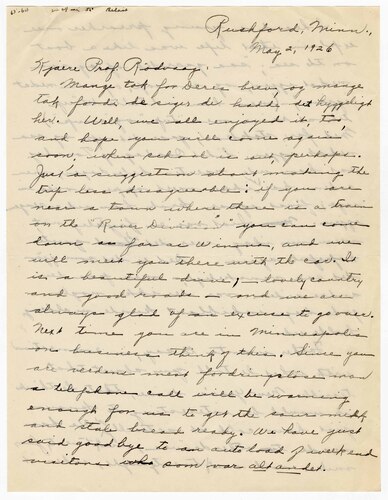 Rushford, Minn.,
May 2, 1926
Kjaere Prof. Rodvaag:
Mange tak for Deres brev, og mange
tak fordi de siger de hadde det hyggeligt
her. Well, we all enjoyed it, too,
and hope you will come again
soon, when school is out, perhaps.
Just a suggestion about making the
trip less disagreeable: if you are
near a town where there is a train
on the "River Division" you can come
down as far as Winona, and we
will meet you there with the car. It
is a beautiful drive, – lovely country
and good roads – and we are
always glad of an excuse to go over.
Next time you are in Minneapolis
on business think of this. Since you
are verdens mest fordringsløse man
a telephone call will be warning
enough for us to get the sour milk
and stale bread ready. We have just
said good-bye to an auto load of week end
visitors som var alt andet.